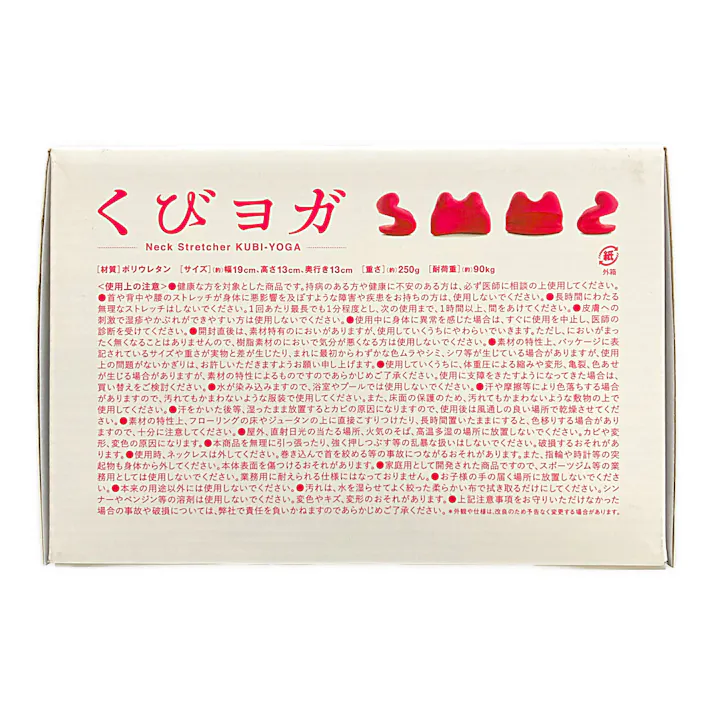 くびヨガ
Neck Stretcher KUBI-YOGA
紙
外箱
[材質]ポリウレタン [サイズ](約)幅19cm、高さ13cm、奥行き13cm [重さ](約)250g [耐荷重](約)90kg
<使用上の注意>●健康な方を対象とした商品です。持病のある方や健康に不安のある方は、必ず医師に相談の上使用してください。
●首や背中や腰のストレッチが身体に悪影響を及ぼすような障害や疾患をお持ちの方は、使用しないでください。●長時間にわたる
無理なストレッチはしないでください。1回あたり最長でも1分程度とし、次の使用まで、1時間以上、間をあけてください。●皮膚への
刺激で湿疹やかぶれができやすい方は使用しないでください。●使用中に身体に異常を感じた場合は、すぐに使用を中止し、医師の
診断を受けてください。●開封直後は、素材特有のにおいがありますが、使用していくうちにやわらいでいきます。ただし、においがまっ
たく無くなることはありませんので、樹脂素材のにおいで気分が悪くなる方は使用しないでください。●素材の特性上、パッケージに表
記されているサイズや重さが実物と差が生じたり、まれに最初からわずかな色ムラやシミ、シワ等が生じている場合がありますが、使用
上の問題がないかぎりは、お許しいただきますようお願い申し上げます。●使用していくうちに、体重圧による縮みや変形、亀裂、色あせ
が生じる場合がありますが、素材の特性によるものですのであらかじめご了承ください。使用に支障をきたすようになってきた場合は、
買い替えをご検討ください。●水が染み込みますので、浴室やプールでは使用しないでください。●汗や摩擦等により色落ちする場合
がありますので、汚れてもかまわないような服装で使用してください。また、床面の保護のため、汚れてもかまわないような敷物の上で
使用してください。●汗をかいた後等、湿ったまま放置するとカビの原因になりますので、使用後は風通しの良い場所で乾燥させてくだ
さい。●素材の特性上、フローリングの床やジュータンの上に直接こすりつけたり、長時間置いたままにすると、色移りする場合があり
ますので、十分に注意してください。●屋外、直射日光の当たる場所、火気のそば、高温多湿の場所に放置しないでください。カビや変
形、変色の原因になります。●本商品を無理に引っ張ったり、強く押しつぶす等の乱暴な扱いはしないでください。破損するおそれがあ
ります。●使用時、ネックレスは外してください。巻き込んで首を絞める等の事故につながるおそれがあります。また、指輪や時計等の突
起物も身体から外してください。本体表面を傷つけるおそれがあります。●家庭用として開発された商品ですので、スポーツジム等の業
務用としては使用しないでください。業務用に耐えられる仕様にはなっておりません。●お子様の手の届く場所に放置しないでくださ
い。●本来の用途以外には使用しないでください。●汚れは、水を湿らせてよく絞った柔らかい布で拭き取るだけにしてください。シン
ナーやベンジン等の溶剤は使用しないでください。変色やキズ、変形のおそれがあります。●上記注意事項をお守りいただけなかった
場合の事故や破損については、弊社で責任を負いかねますのであらかじめご了承ください。＊外観や仕様は、改良のため予告なく変更する場合があります。